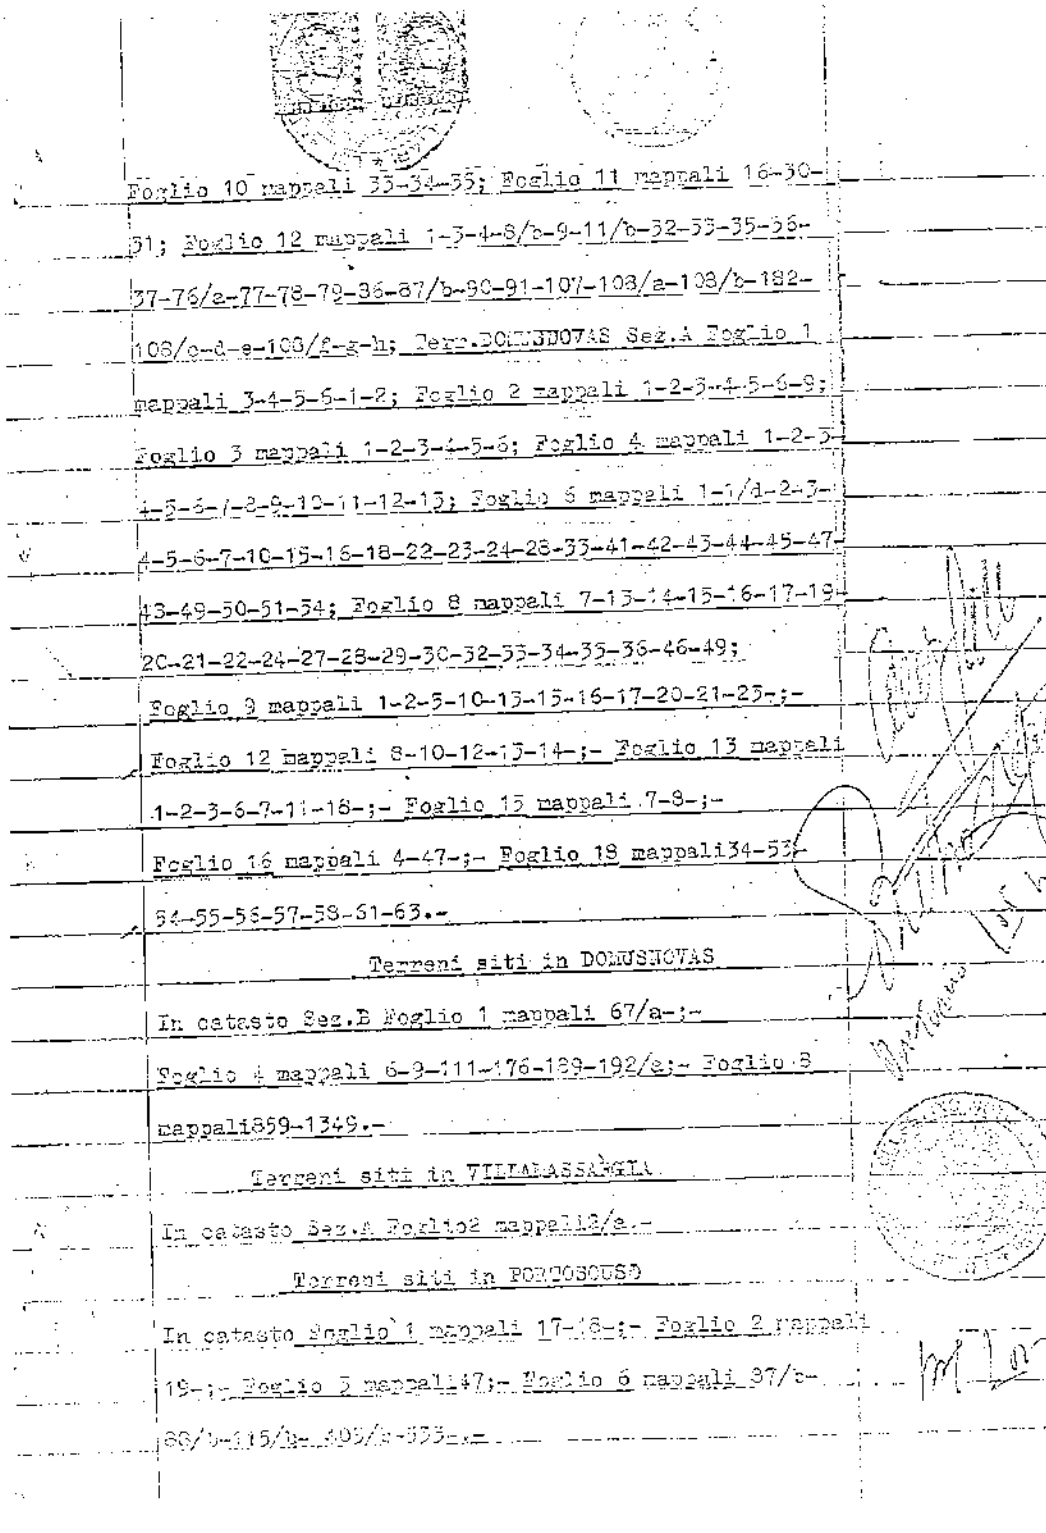 Foglio 10 mappali 33-34-35; Foglio 11 mappali 16-30-
31; Foglio 12 mappali 1-3-4-8/b-9-11/b-32-33-35-36-
37-76/a-77-78-79-86-87/b-90-91-107-108/a-108/b-182-
108/c-d-e-108/f-g-h; Terr.DOMUSNOVAS Sez.A Foglio 1
mappali 3-4-5-6-1-2; Foglio 2 mappali 1-2-3-4-5-6-9;
Foglio 3 mappali 1-2-3-4-5-6; Foglio 4 mappali 1-2-3-
4-5-6-7-8-9-10-11-12-13; Foglio 6 mappali 1-1/d-2-3-
4-5-6-7-10-15-16-18-22-23-24-28-33-41-42-43-44-45-47-
43-49-50-51-54; Foglio 8 mappali 7-13-14-15-16-17-19-
20-21-22-24-27-28-29-30-32-33-34-35-36-46-49;
Foglio 9 mappali 1-2-5-10-13-15-16-17-20-21-23-;-
Foglio 12 mappali 8-10-12-13-14-;- Foglio 13 mappali
1-2-3-6-7-11-18-;- Foglio 15 mappali 7-8-;-
Foglio 16 mappali 4-47-;- Foglio 18 mappali34-53-
54-55-56-57-58-61-63.-
Terreni siti in DOMUSNOVAS
In catasto Sez.B Foglio 1 mappali 67/a-;-
Foglio 4 mappali 6-9-111-176-189-192/a;- Foglio 8
mappali859-1349.-
Terreni siti in VILLAMASSARGIA
In catasto Sez.A Foglio2 mappali2/a.-
Terreni siti in PORTOSCUSO
In catasto Foglio 1 mappali 17-18-;- Foglio 2 mappali
19-;- Foglio 5 mappali47;- Foglio 6 mappali 87/b-
88/b-115/b-